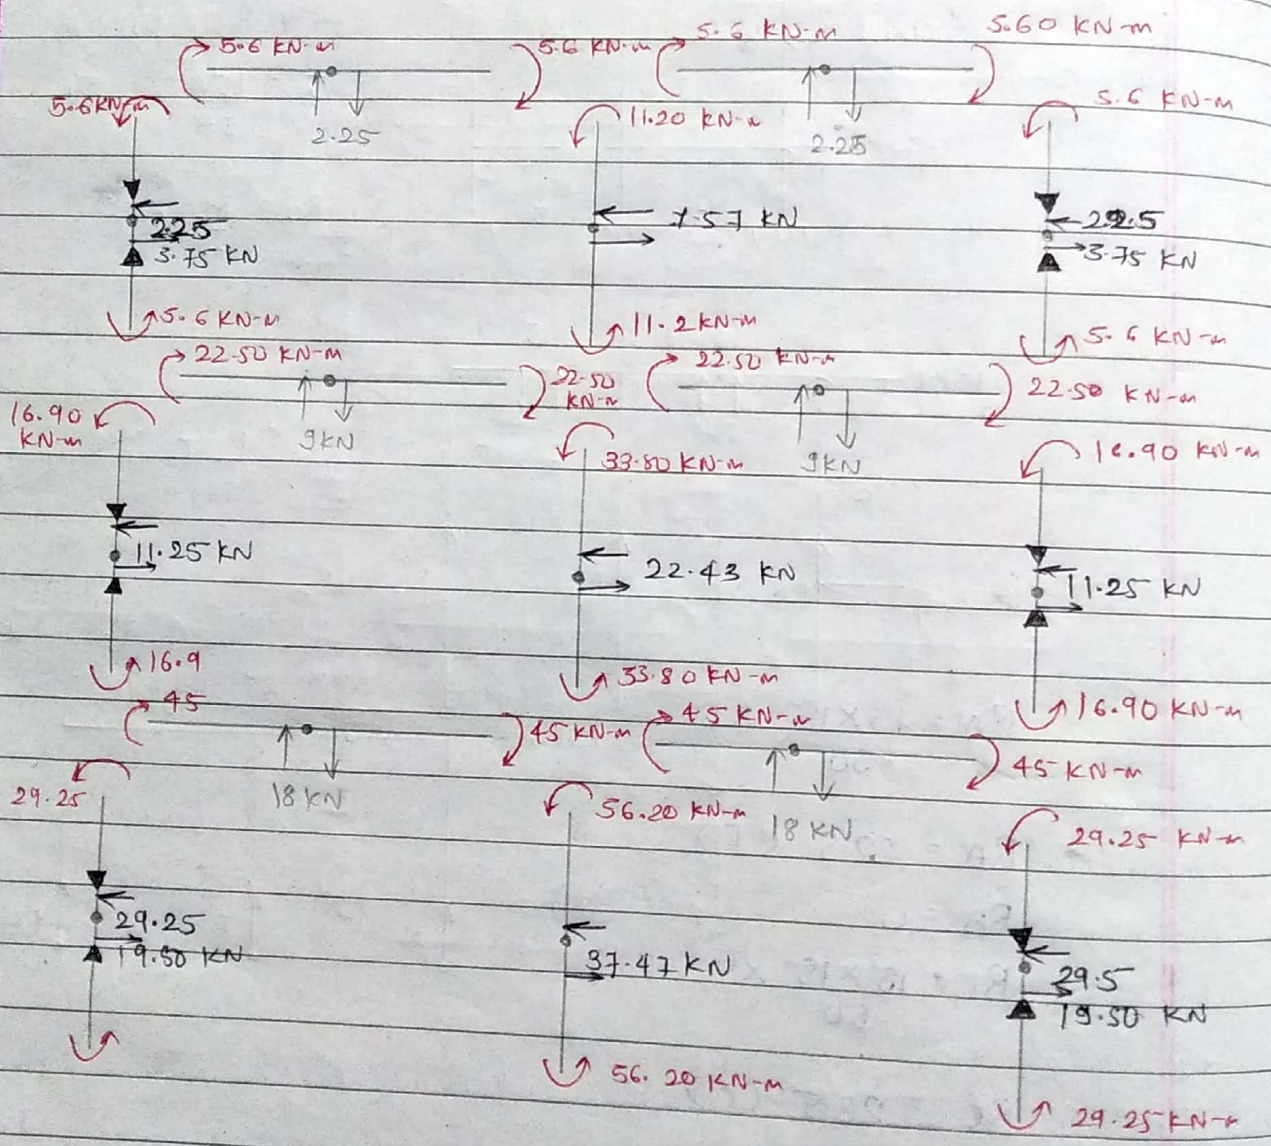 5.6 KN-m 5.6 KN-m 5.6 KN-m 5.60 KN-m
5.6 KN-m 2.25 11.20 KN-m 2.25 5.6 KN-m
2.25 7.57 KN 22.5
3.75 KN 3.75 KN
5.6 KN-m 11.2 KN-m 5.6 KN-m
22.50 KN-m 22.50 KN-m 22.50 KN-m 22.50 KN-m
16.90 KN-m 9KN 33.80 KN-m 9KN 16.90 KN-m
11.25 KN 22.43 KN 11.25 KN
16.9 33.80 KN-m 16.90 KN-m
45 45 KN-m 45 KN-m 45 KN-m
29.25 18 KN 56.20 KN-m 18 KN 29.25 KN-m
29.25 37.47 KN 29.5
19.50 KN 19.50 KN
56.20 KN-m 29.25 KN-m